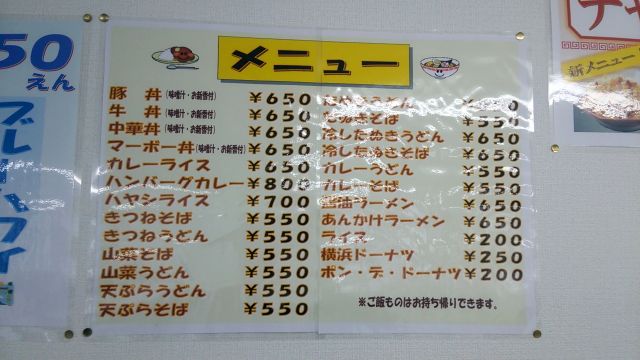 50
えん
メニュー
豚 丼(味噌汁・お新香付) ¥650
牛 丼(味噌汁・お新香付) ¥650
中華丼(味噌汁・お新香付) ¥650
マーボー丼(味噌汁・お新香付) ¥650
カレーライス ¥650
ハンバーグカレー ¥800
ハヤシライス ¥700
きつねそば ¥550
きつねうどん ¥550
山菜そば ¥550
山菜うどん ¥550
天ぷらうどん ¥550
天ぷらそば ¥550
たぬきそば ¥550
冷したぬきうどん ¥650
冷したぬきそば ¥650
カレーうどん ¥550
カレーそば ¥550
ラーメン ¥650
あんかけラーメン ¥650
ライス ¥200
横浜ドーナツ ¥250
ポン・デ・ドーナツ ¥200
※ご飯ものはお持ち帰りできます。
新メニュー